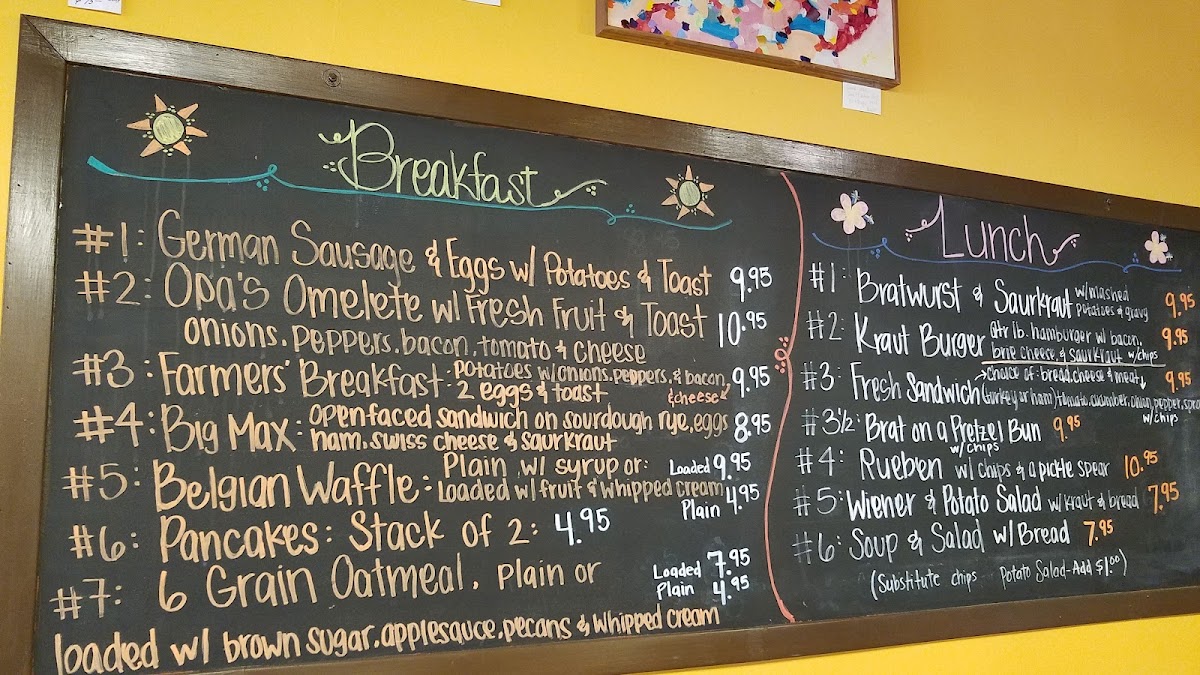 Breakfast
#1: German Sausage & Eggs w/ Potatoes & Toast 9.95
#2: Opa's Omelete w/ Fresh Fruit & Toast 10.95
onions. peppers. bacon. tomato & cheese
#3: Farmers' Breakfast: potatoes w/onions. peppers. & bacon, 9.95
2 eggs & toast & cheese
#4: Big Max: open faced sandwich on sourdough rye, eggs 8.95
ham. swiss cheese & saurkraut
#5: Belgian Waffle: Plain w/ syrup or: Loaded 9.95
Loaded w/ fruit & whipped cream Plain 4.95
#6: Pancakes: Stack of 2: 4.95
#7: 6 Grain Oatmeal, Plain or Loaded 7.95
Plain 4.95
loaded w/ brown sugar. applesauce. pecans & whipped cream
Lunch
#1: Bratwurst & Saurkraut w/mashed potatoes & gravy 9.95
#2: Kraut Burger qtr lb. hamburger w/ bacon, 9.95
brie cheese & saurkraut w/chips
#3: Fresh Sandwich choice of: bread. cheese & meat 9.95
(turkey or ham) tomato. cucumber. onion. pepper. spread
w/chips
#3½: Brat on a Pretzel Bun 9.95
w/chips
#4: Rueben w/ chips & a pickle spear 10.95
#5: Wiener & Potato Salad w/ kraut & bread 7.95
#6: Soup & Salad w/ Bread 7.95
(Substitute chips Potato Salad-Add $1.00)